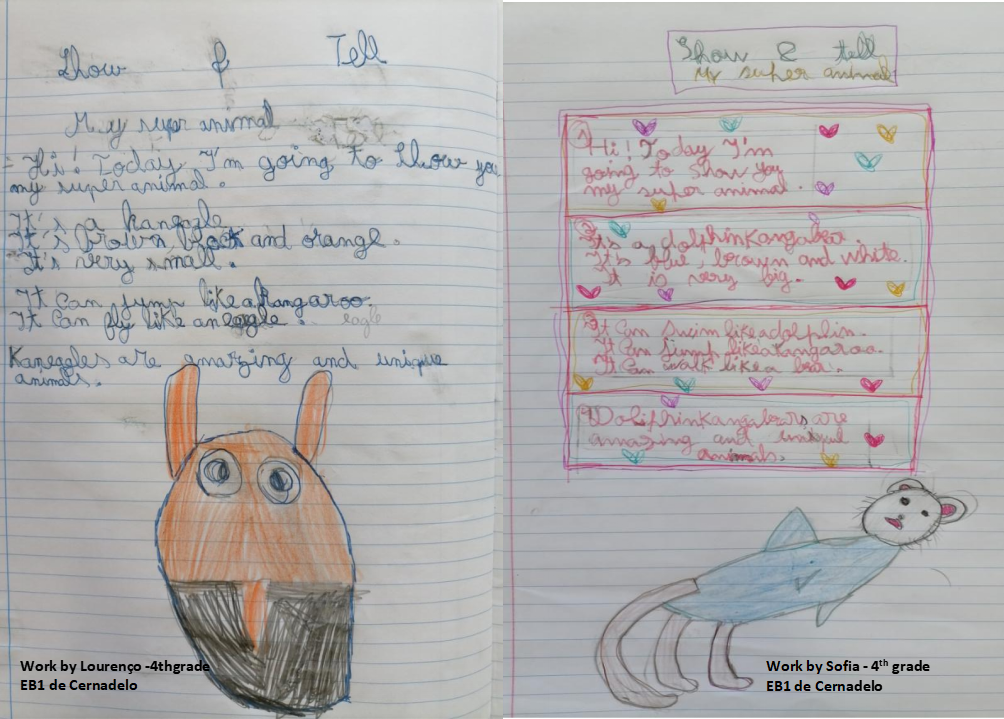 Show & Tell
My super animal
- Hi! Today I'm going to show you
my super animal.
It's a kaneagle
It's brown black and orange.
It's very small.
It can jump like a kangaroo.
It can fly like an eagle. eagle
Kaneagles are amazing and unique
animals.
Work by Lourenço -4thgrade
EB1 de Cernadelo
Show & tell
My super animal
1
Hi! Today I'm
going to show you
my super animal.
2
It's a dolphinkangabea.
It's blue, brown and white.
It is very big.
3
It can swim like a dolphin.
It can jump like a kangaroo.
It can walk like a bea.
Doliphinkangabears are
amazing and uniqul
animals.
Work by Sofia - 4th grade
EB1 de Cernadelo